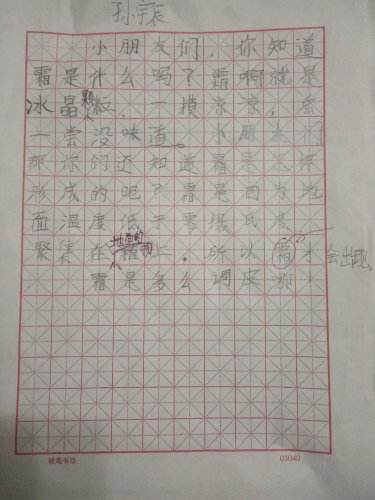 孙宇宸
小朋友们，你知道
霜是什么吗？霜啊就是
冰晶颗粒，一摸凉凉，
一尝没味道。小朋友们
那你们还知道霜是怎样
形成的呢？霜是因为地
面温度低于零摄氏度
聚集在地面的植物上，所以霜才会出现。
霜是多么调皮那！
硬笔书法
05040